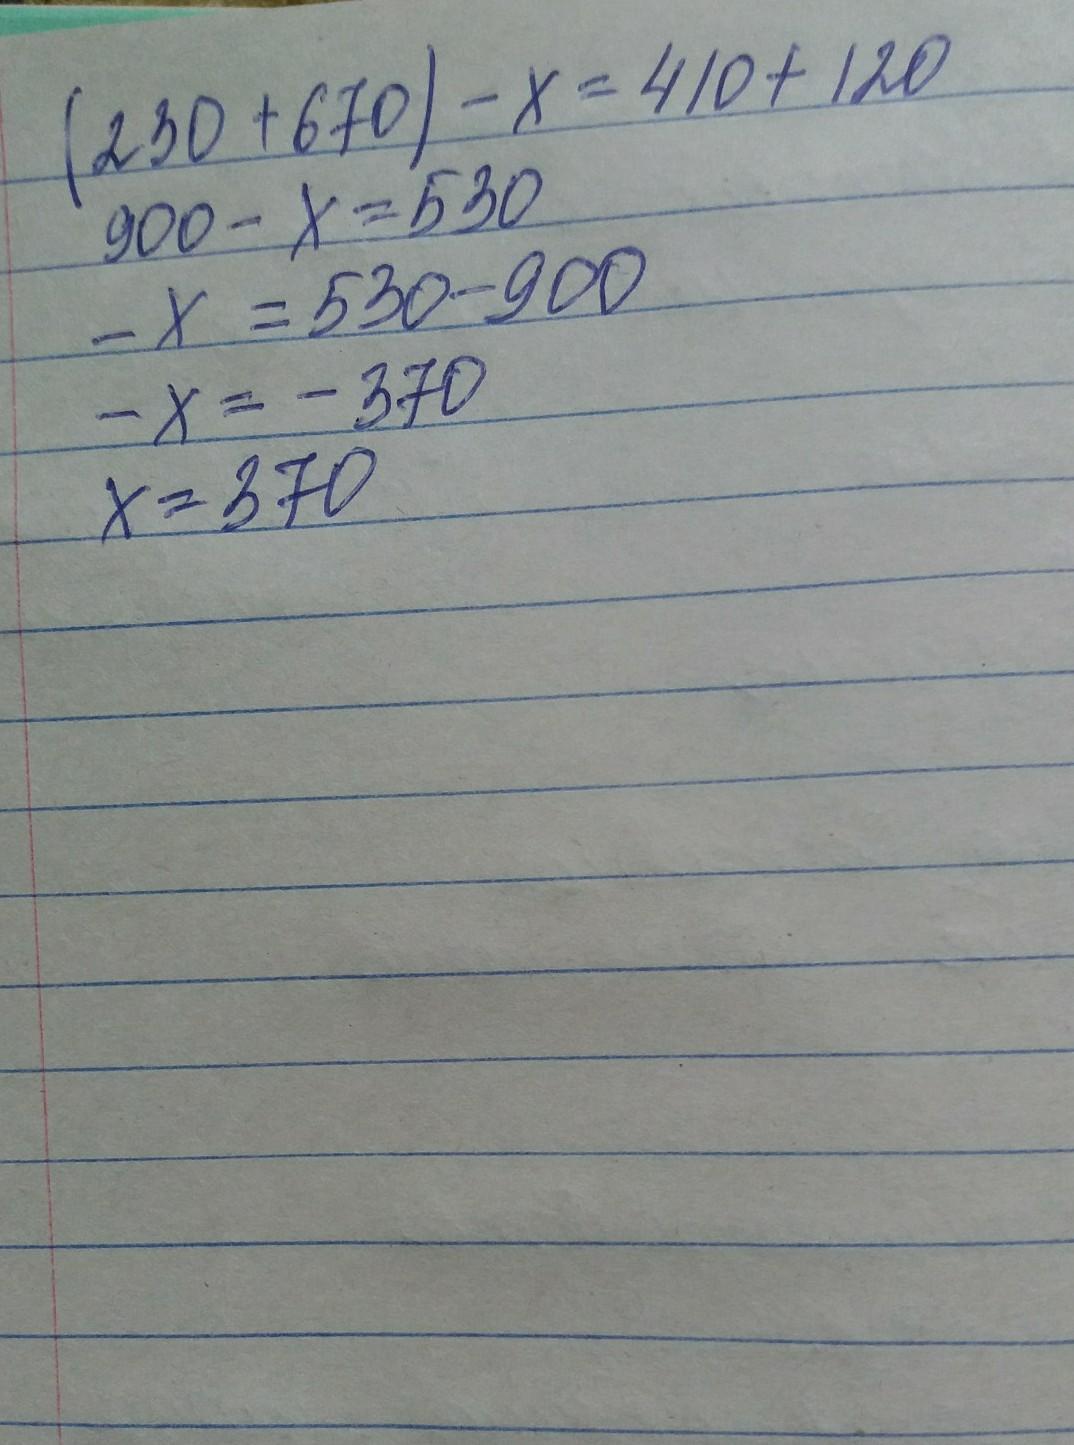 (230 + 670) - x = 410 + 120
900 - x = 530
- x = 530 - 900
- x = - 370
x = 370